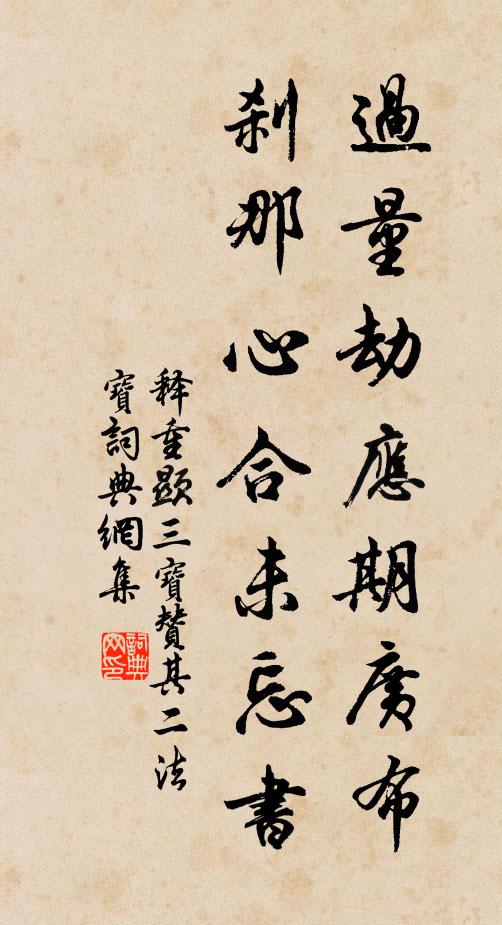 過量劫應期廣布
剎那心合未忘書
释重顯三寶贊其二法
寶詞典網集
詞典
网印